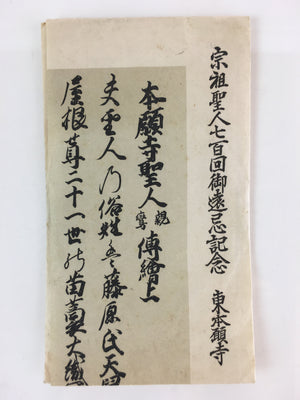 宗祖聖人七百回御遠忌記念　東本願寺
本願寺聖人親鸞傳繪上
夫聖人乃俗姓者藤原氏天
屋根尊二十一世乃苗裔大織